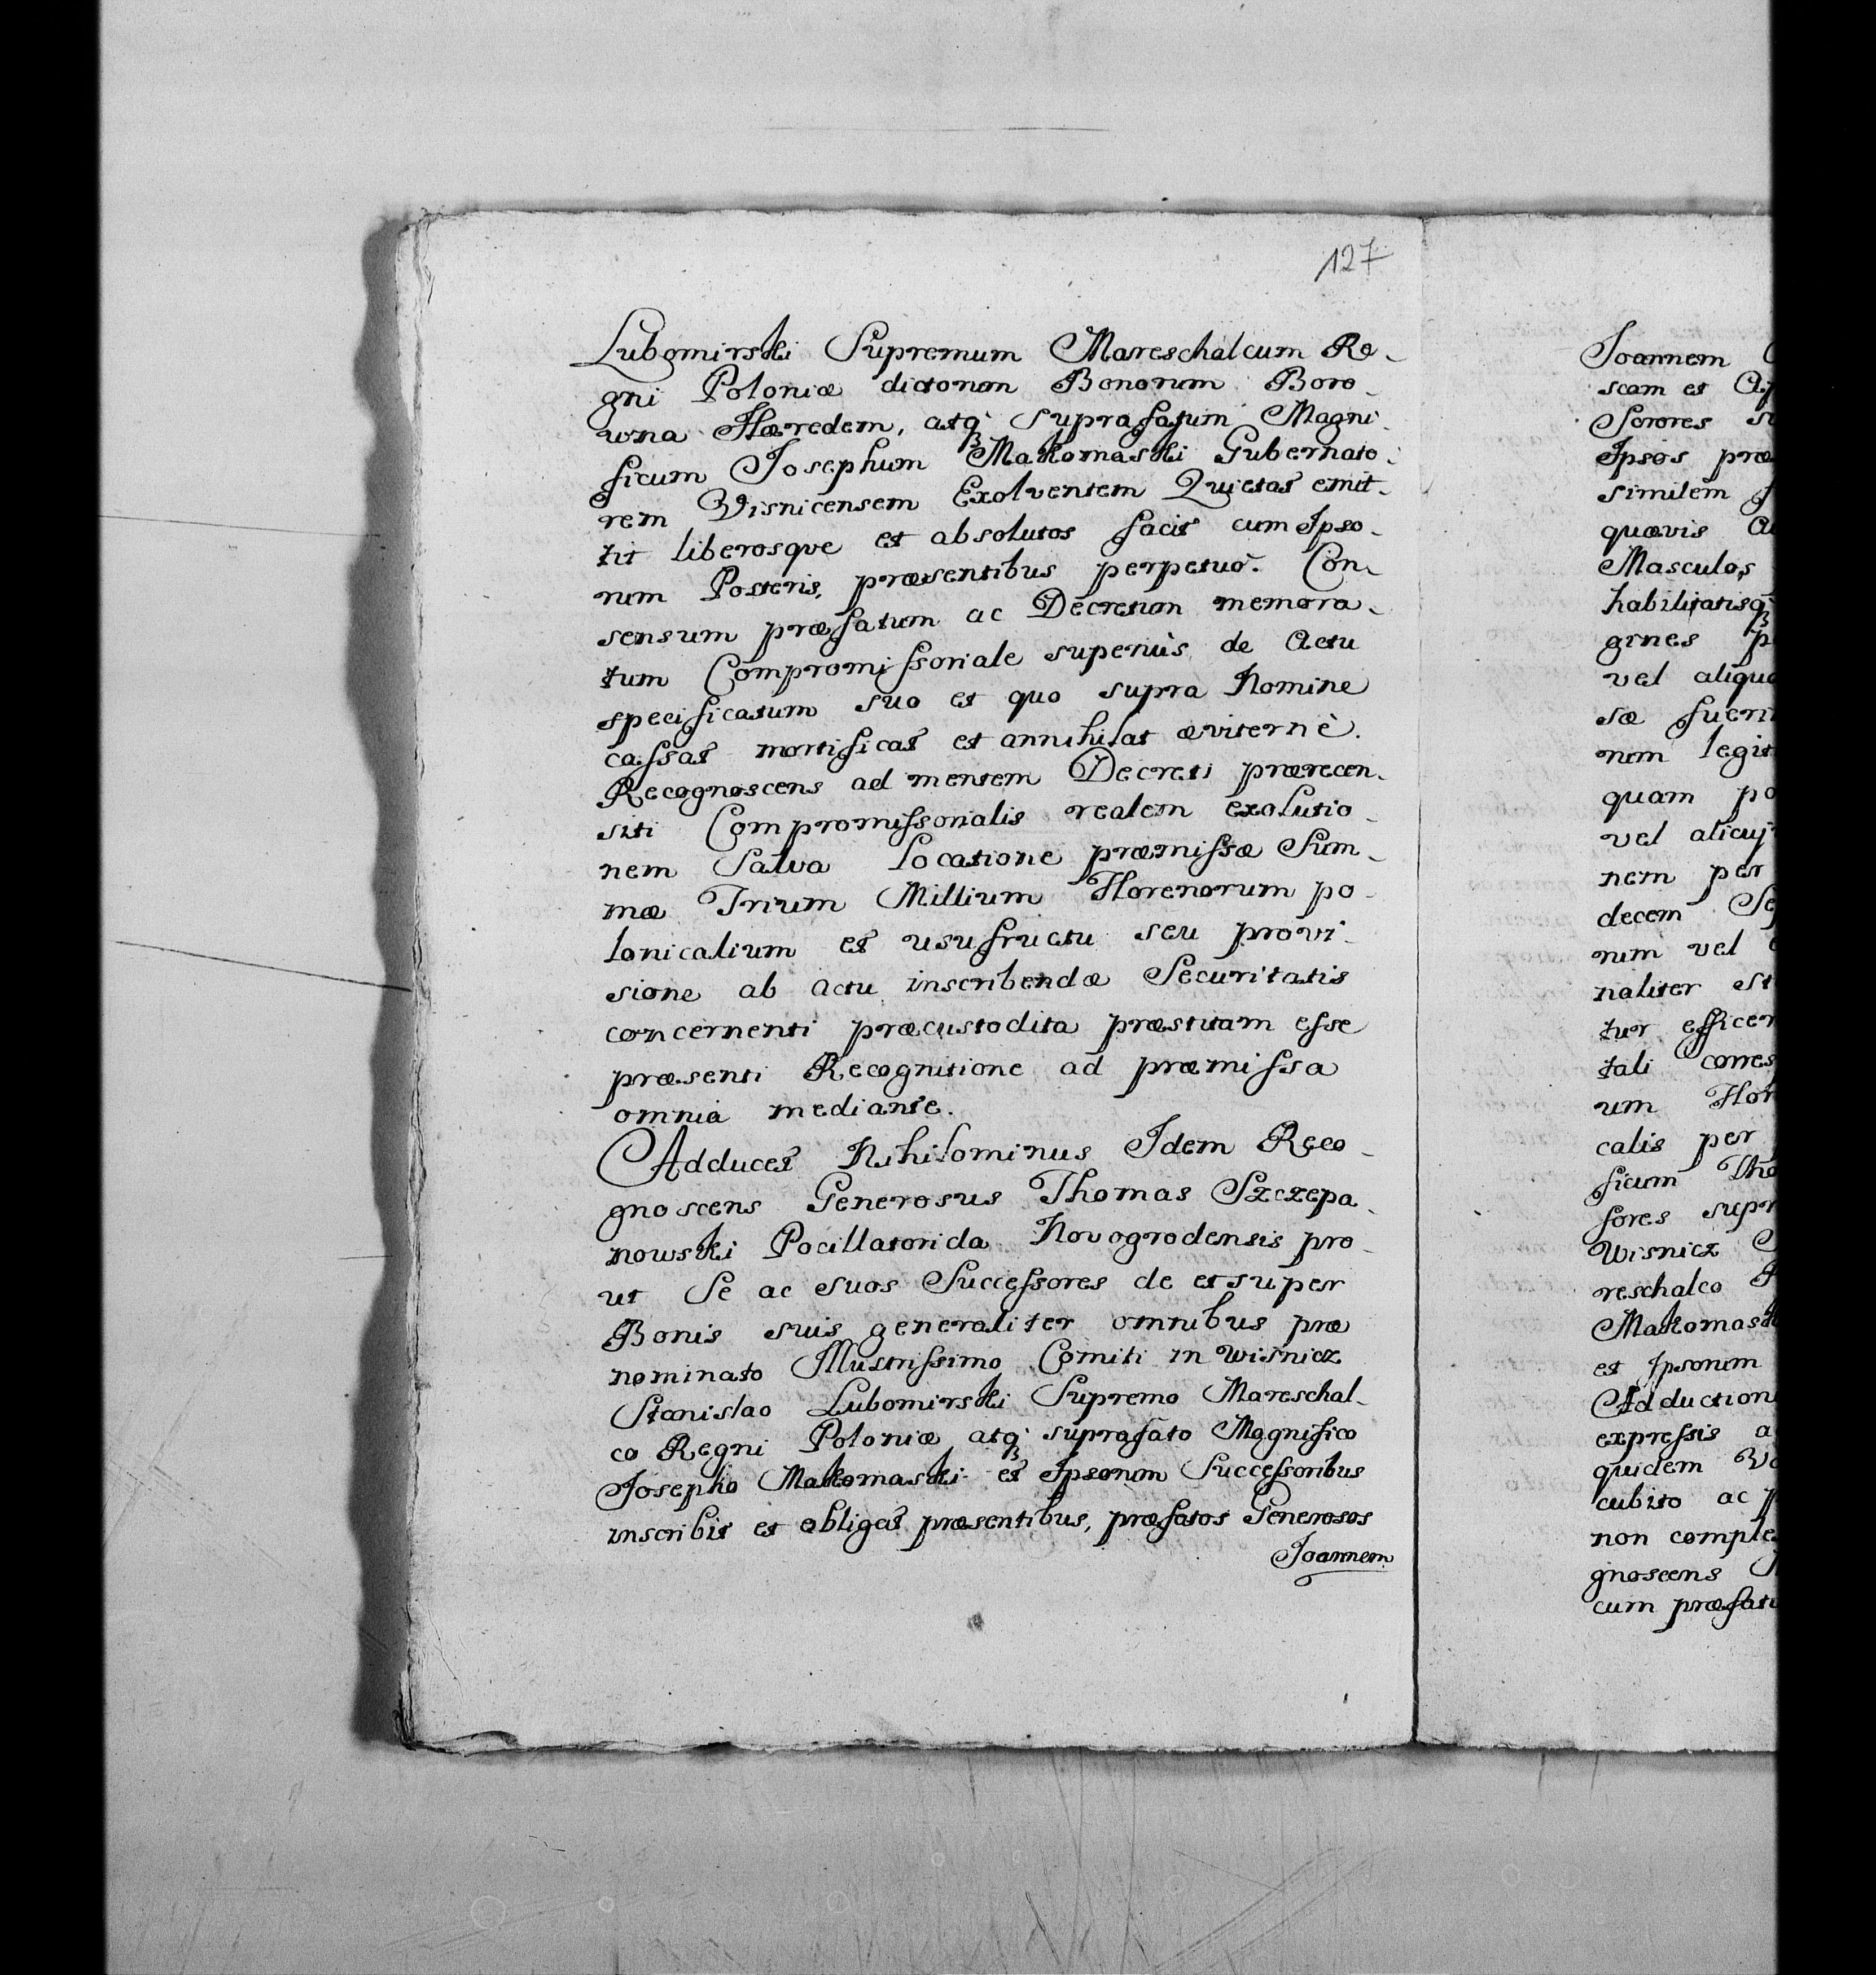 127
Lubomirski Supremum Mareschalcum Re-
gni Poloniæ dictorum Bonorum Boro-
wna Hæredem, atq; suprafatum Magni-
ficum Josephum Makomaski Gubernato-
rem Visnicensem Exolventem Quietat emit-
tit liberosque et absolutos facit cum Ipso-
rum Posteris, præsentibus perpetuò. Con-
sensum præfatum ac Decretum memora-
tum Compromissoriale superiùs de Actu
specificatum suo et quo supra Nomine
cassat mortificat et annihilat æviternè.
Recognoscens ad mentem Decreti prærecen-
siti Compromissorialis realem exolutio-
nem Salva locatione præmissæ Sum-
mæ Trium Millium Florenorum po-
lonicalium et usufructu seu provi-
sione ab actu inscribendæ Securitatis
concernenti præcustodita præstitam esse
præsenti Recognitione ad præmissa
omnia mediante.
Adducet Nihilominus Idem Reco-
gnoscens Generosus Thomas Szczepa-
nowski Pocillatorida Novogrodensis pro-
ut Se ac suos Successores de et super
Bonis suis generaliter omnibus præ
nominato Illustrissimo Comiti in Wisnicz
Stanislao Lubomirski Supremo Mareschal-
co Regni Poloniæ atq; suprafato Magnifico
Josepho Makomaski et Ipsorum Successoribus
inscribit et obligat præsentibus, præfatos Generosos
Joannem
Joannem
scam et
Sorores
Ipsos
similem
quævis
Masculos,
habilitatisq;
gines
vel
sæ
nem
quam
vel
nem per
decem
rum vel
naliter
tur
tali
um
calis per
ficum
sores
Wisnicz
reschalco
et Ipsorum
expressis
quidem
cubito ac
non
gnoscens
cum